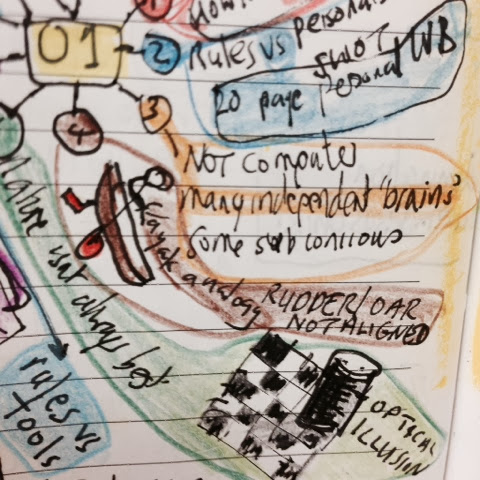 1
01
2
Rules vs personal
SWOT
Personal
WB
20 page
3
4
NOT computer
many independent "brains"
Some subconcious
kayak analogy
RUDDER/OAR
NOT ALIGNED
Nature isnt always best
rules vs
tools
OPTICAL
ILLUSION